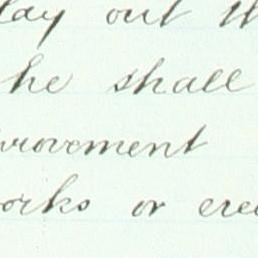 lay out th
he shall
provement
orks or erec